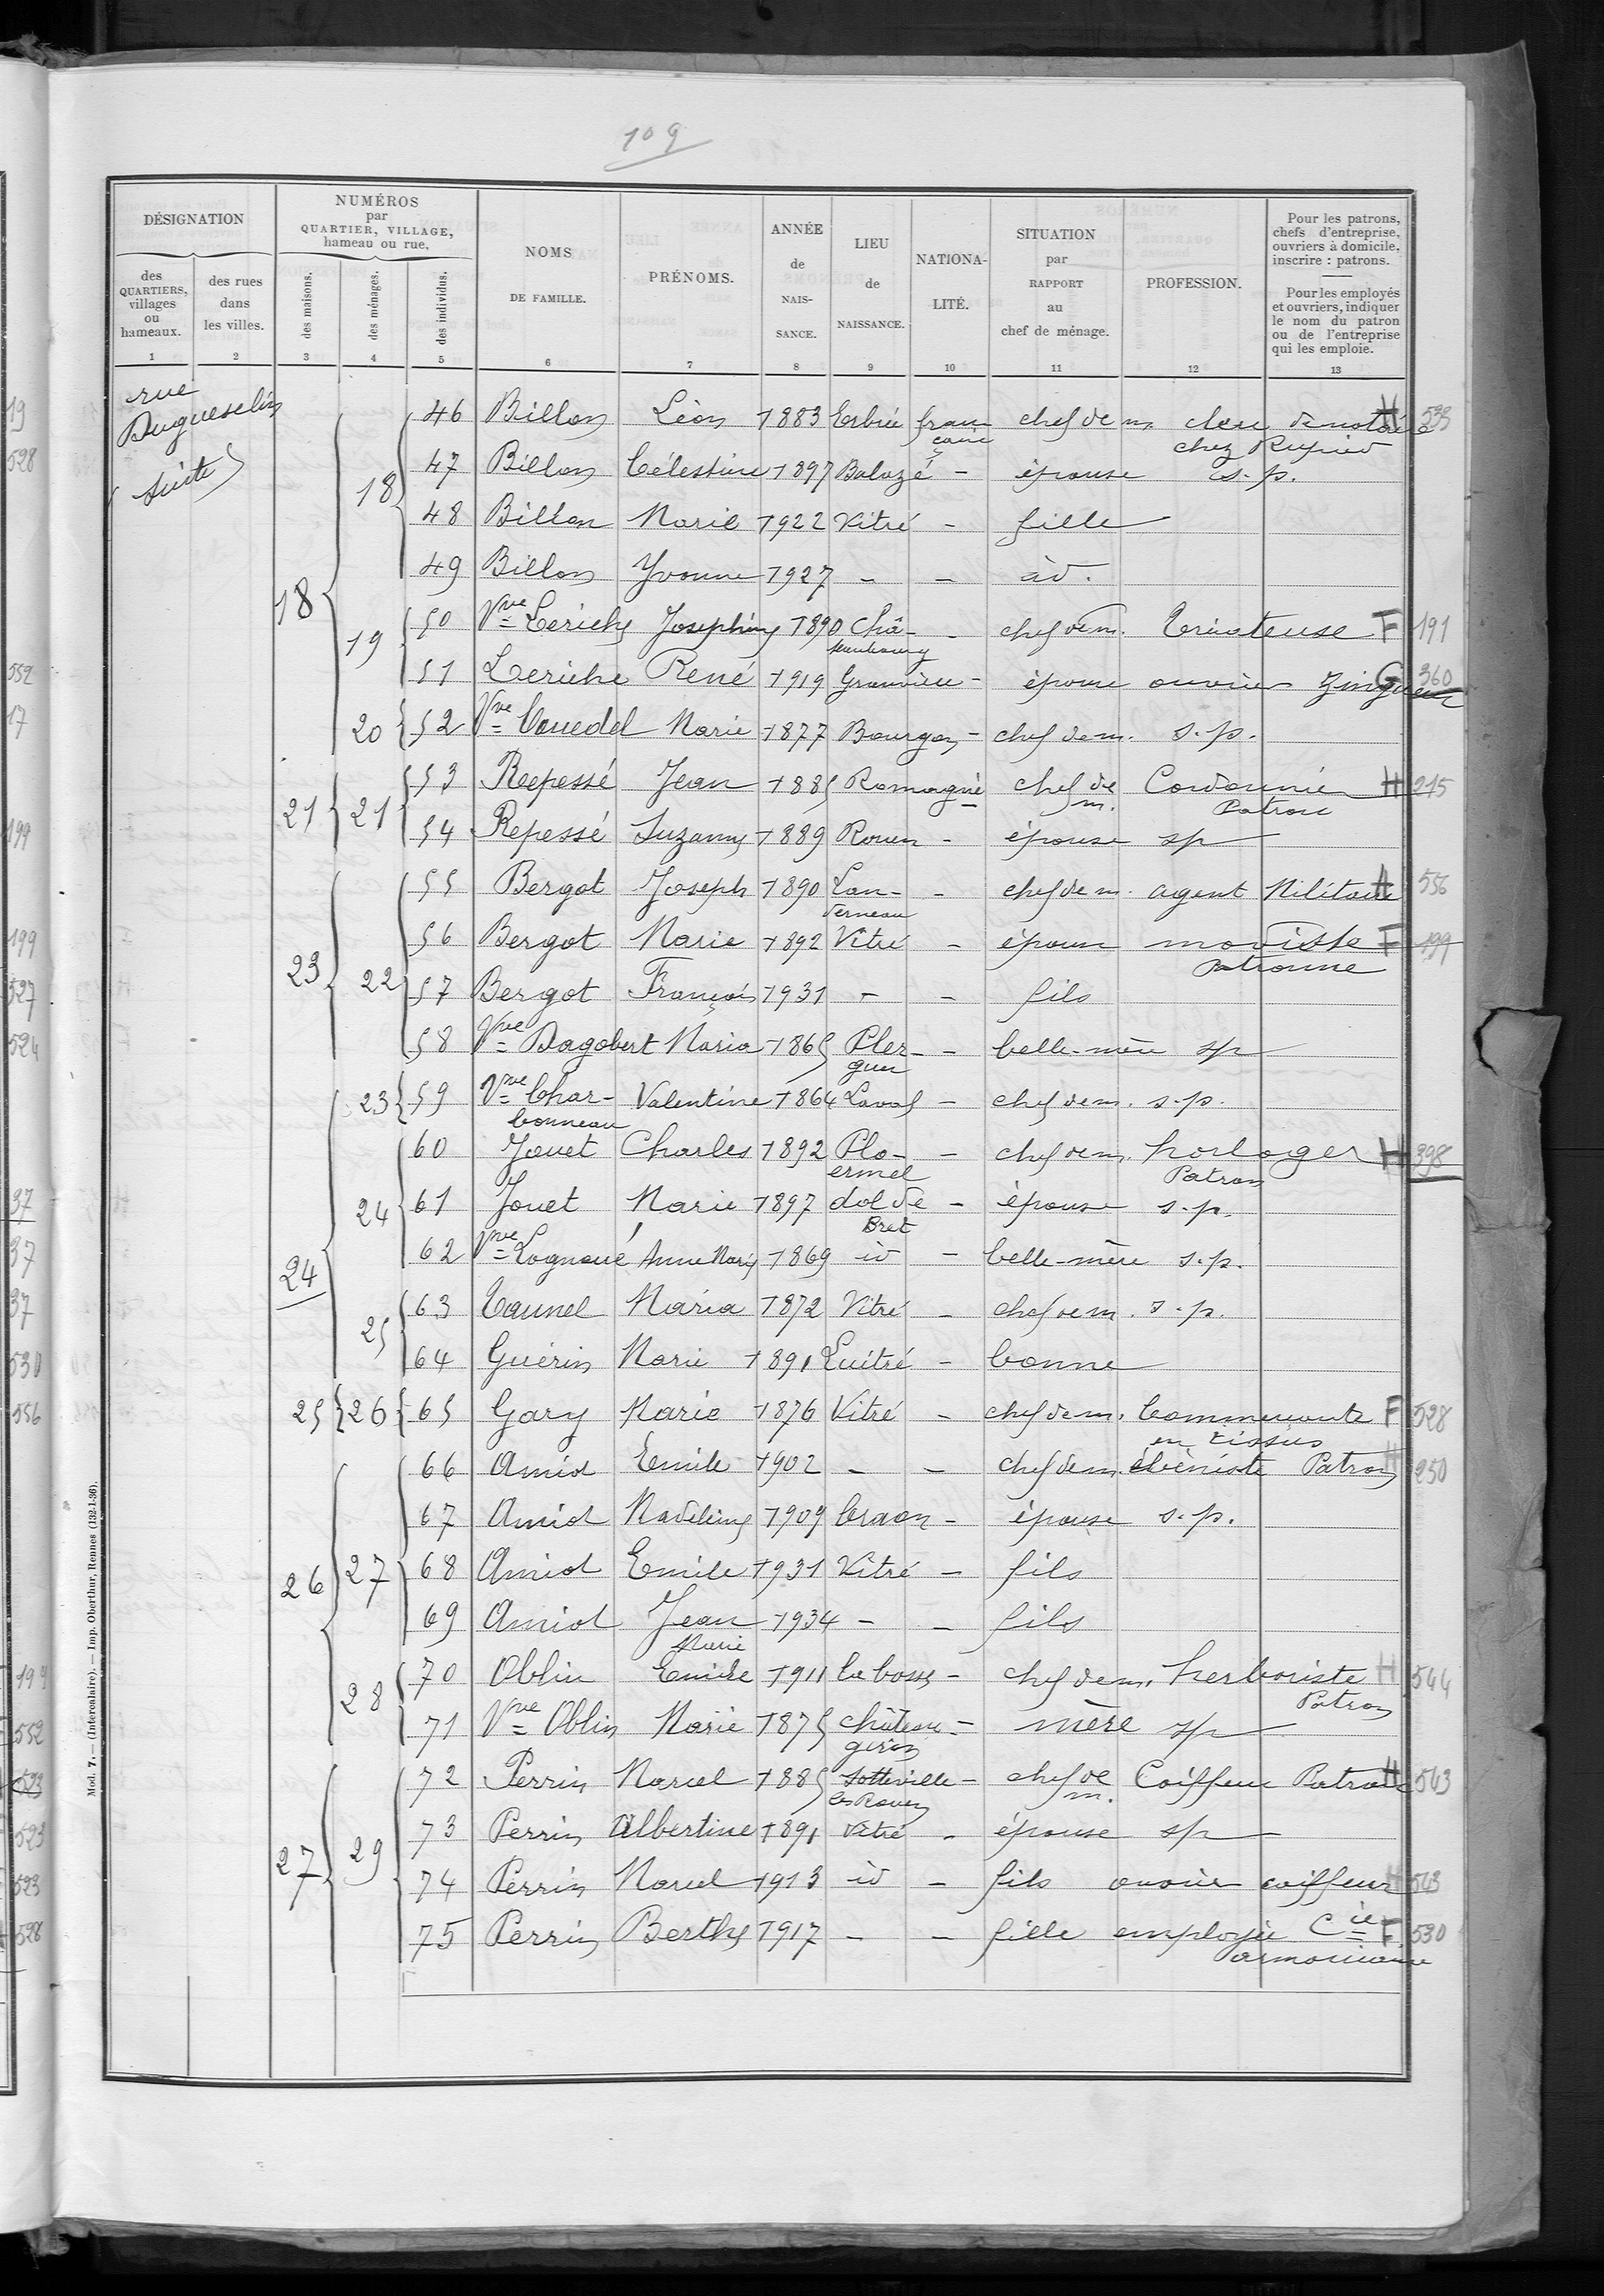 109
DÉSIGNATION
des QUARTIERS, villages ou hameaux.
des rues dans les villes.
NUMÉROS par QUARTIER, VILLAGE, hameau ou rue,
des maisons.
des ménages.
des individus.
NOMS DE FAMILLE.
PRÉNOMS.
ANNÉE de NAISSANCE.
LIEU de NAISSANCE.
NATIONALITÉ.
SITUATION par RAPPORT au chef de ménage.
PROFESSION.
Pour les patrons, chefs d'entreprise, ouvriers à domicile, inscrire : patrons.
Pour les employés et ouvriers, indiquer le nom du patron ou de l'entreprise qui les emploie.
1 2 3 4 5 6 7 8 9 10 11 12 13
rue Duguesclin (suite)
18 18 46 Billon Léon 1883 Erbrée française chef de m. clerc de notaire H 533
chez Rupied
47 Billon Célestine 1897 Balazé - épouse s.p.
48 Billon Marie 1922 Vitré - fille
49 Billon Yvonne 1927 - - id.
19 50 Vve Leriche Josephine 1890 Châteaubourg - chef de m. Tricoteuse F 191
51 Leriche René 1919 Granville - épouse ouvrier zingueur G 360
20 52 Vve Couedel Marie 1877 Bourgon - chef de m. s.p.
21 21 53 Repessé Jean 1885 Romagné - chef de m. Cordonnier Patron H 215
54 Repessé Suzanne 1889 Rouen - épouse sp
23 22 55 Bergot Joseph 1890 Landerneau - chef de m. agent Militaire H 556
56 Bergot Marie 1892 Vitré - épouse modiste Patronne F 199
57 Bergot François 1931 - - fils
58 Vve Dagobert Maria 1865 Plerguer - belle-mère sp
24 23 59 Vve Charbonneau Valentine 1864 Laval - chef de m. s.p.
24 60 Jouet Charles 1892 Ploermel - chef de m. horloger Patron H 398
61 Jouet Marie 1897 dol de Bret - épouse s.p.
62 Vve Lognoné Anne Marie 1869 id - belle-mère s.p.
25 63 Taunel Maria 1872 Vitré - chef de m. s.p.
64 Guérin Marie 1891 Luitré - bonne
25 26 65 Gary Marie 1876 Vitré - chef de m. Commerçante en tissus F 528
26 27 66 Amiot Emile 1902 - - chef de m. ébéniste Patron H 250
67 Amiot Madeleine 1909 Craon - épouse s.p.
68 Amiot Emile 1931 Vitré - fils
69 Amiot Jean Marie 1934 - - fils
28 70 Oblin Emile 1911 la bosse - chef de m. herboriste Patron H 544
71 Vve Oblin Marie 1875 château-giron - mère sp
27 29 72 Perrin Marcel 1885 Sotteville les Rouen - chef de m. Coiffeur Patron H 543
73 Perrin Albertine 1891 Vitré - épouse sp
74 Perrin Marcel 1913 id - fils ouvrier coiffeur H 543
75 Perrin Berthe 1917 - - fille employée Cie armoricaine F 530
Mod. 7. — (Intercalaire). — Imp. Oberthur, Rennes (132-1-36).
19
528
552
17
199
199
527
524
37
37
37
530
556
199
552
523
523
523
528